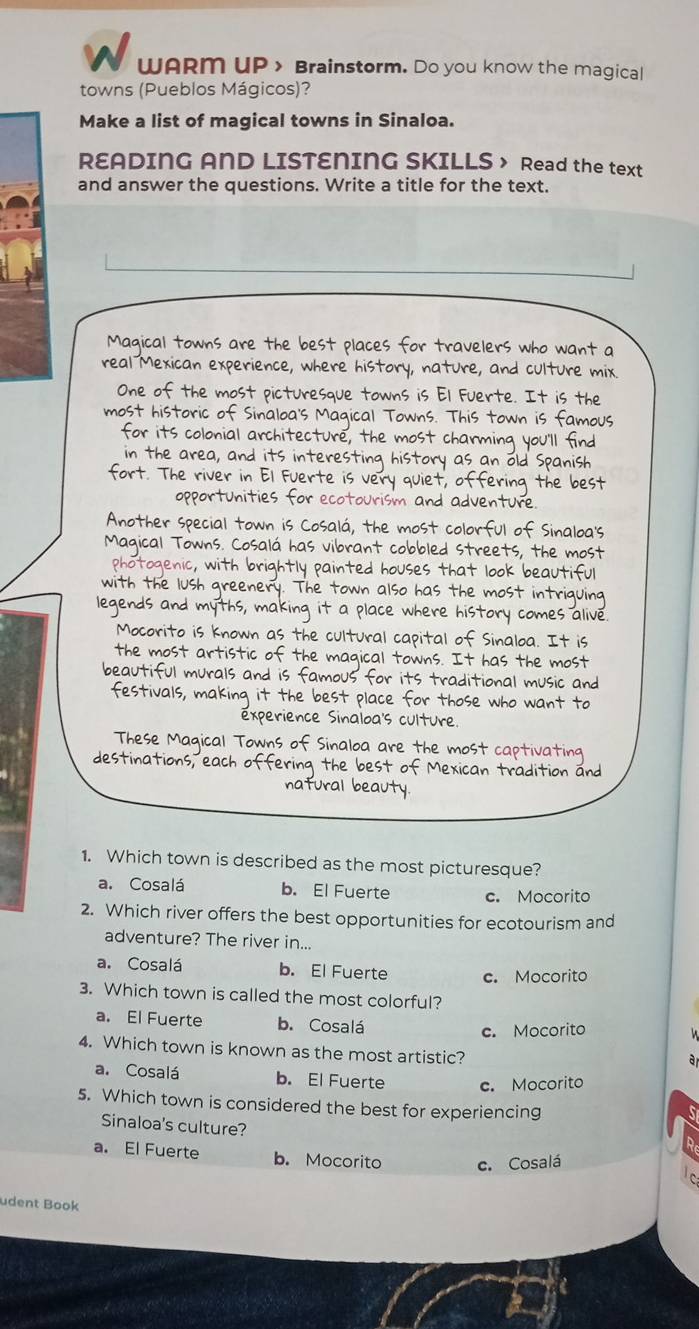 WARM UP > Brainstorm. Do you know the magical
towns (Pueblos Mágicos)?
Make a list of magical towns in Sinaloa.
READING AND LISTENING SKILLS > Read the text
and answer the questions. Write a title for the text.
Magical towns are the best places for travelers who want a
real Mexican experience, where history, nature, and culture mix.
One of the most picturesque towns is El Fuerte. It is the
most historic of Sinaloa's Magical Towns. This town is famous
for its colonial architecture, the most charming you'll find
in the area, and its interesting history as an old Spanish
fort. The river in El Fuerte is very quiet, offering the best
opportunities for ecotourism and adventure.
Another special town is Cosalá, the most colorful of Sinaloa's
Magical Towns. Cosalá has vibrant cobbled streets, the most
photogenic, with brightly painted houses that look beautiful
with the lush greenery. The town also has the most intriguing
legends and myths, making it a place where history comes alive.
Mocorito is known as the cultural capital of Sinaloa. It is
the most artistic of the magical towns. It has the most
beautiful murals and is famous for its traditional music and
festivals, making it the best place for those who want to
experience Sinaloa's culture.
These Magical Towns of Sinaloa are the most captivating
destinations, each offering the best of Mexican tradition and
natural beauty.
1. Which town is described as the most picturesque?
a. Cosalá b. El Fuerte c. Mocorito
2. Which river offers the best opportunities for ecotourism and
adventure? The river in...
a. Cosalá b. El Fuerte c. Mocorito
3. Which town is called the most colorful?
a. El Fuerte b. Cosalá c. Mocorito
4. Which town is known as the most artistic?
a. Cosalá b. El Fuerte c. Mocorito
5. Which town is considered the best for experiencing
Sinaloa's culture?
a. El Fuerte b. Mocorito c. Cosalá
udent Book